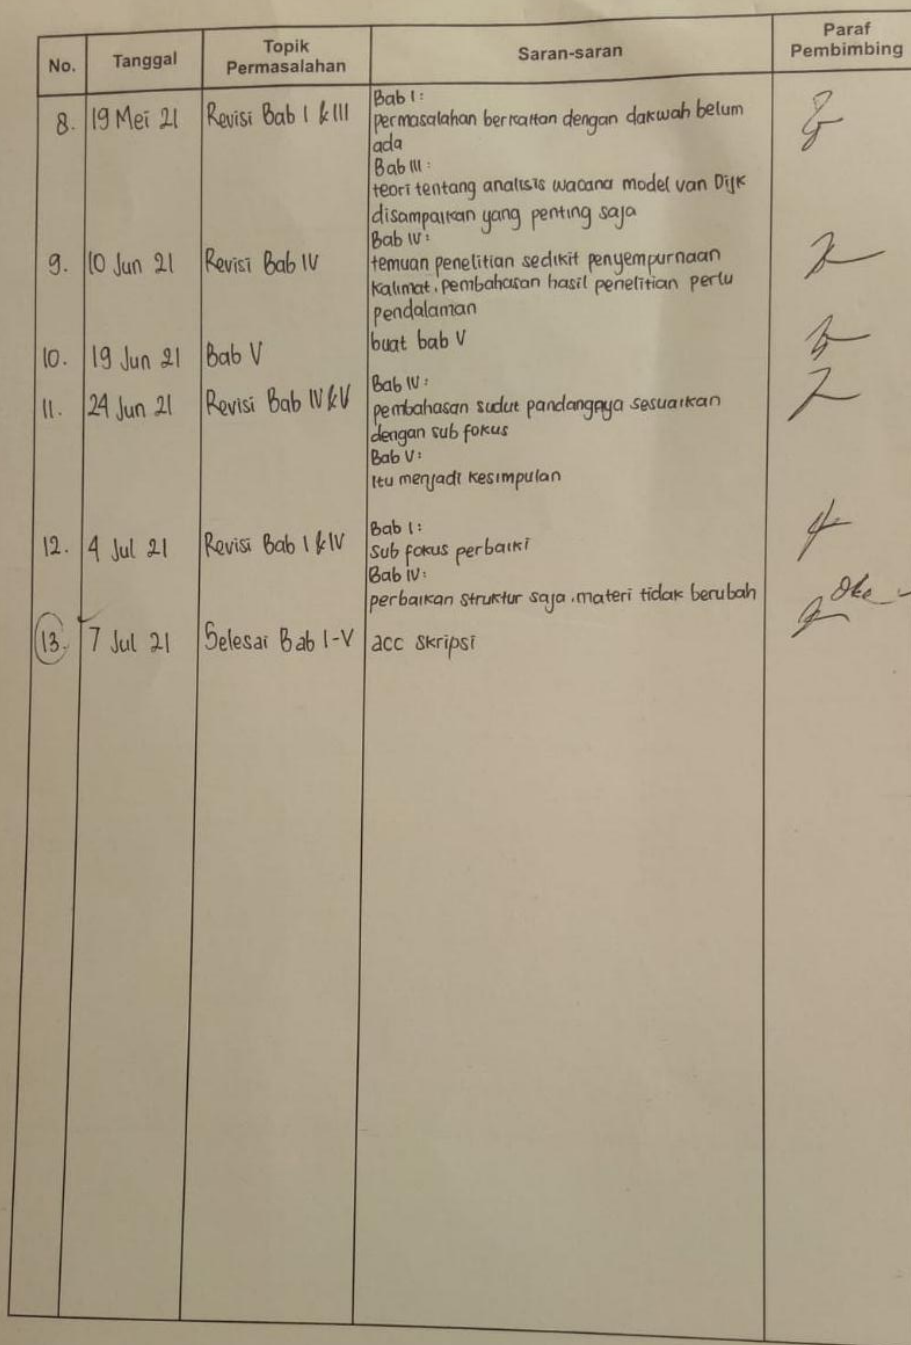 No. Tanggal Topik Permasalahan Saran-saran Paraf Pembimbing
8. 19 Mei 21 Revisi Bab I & III Bab I:
permasalahan berkaitan dengan dakwah belum
ada
Bab III:
teori tentang analisis wacana model van Dijk
disampaikan yang penting saja
Bab IV:
9. 10 Jun 21 Revisi Bab IV temuan penelitian sedikit penyempurnaan
kalimat. pembahasan hasil penelitian perlu
pendalaman
10. 19 Jun 21 Bab V buat bab V
11. 24 Jun 21 Revisi Bab IV & V Bab IV:
pembahasan sudut pandangnya sesuaikan
dengan sub fokus
Bab V:
itu menjadi kesimpulan
12. 4 Jul 21 Revisi Bab I & IV Bab I:
Sub fokus perbaiki
Bab IV:
perbaikan struktur saja. materi tidak berubah
13. 7 Jul 21 Selesai Bab I-V acc skripsi Oke